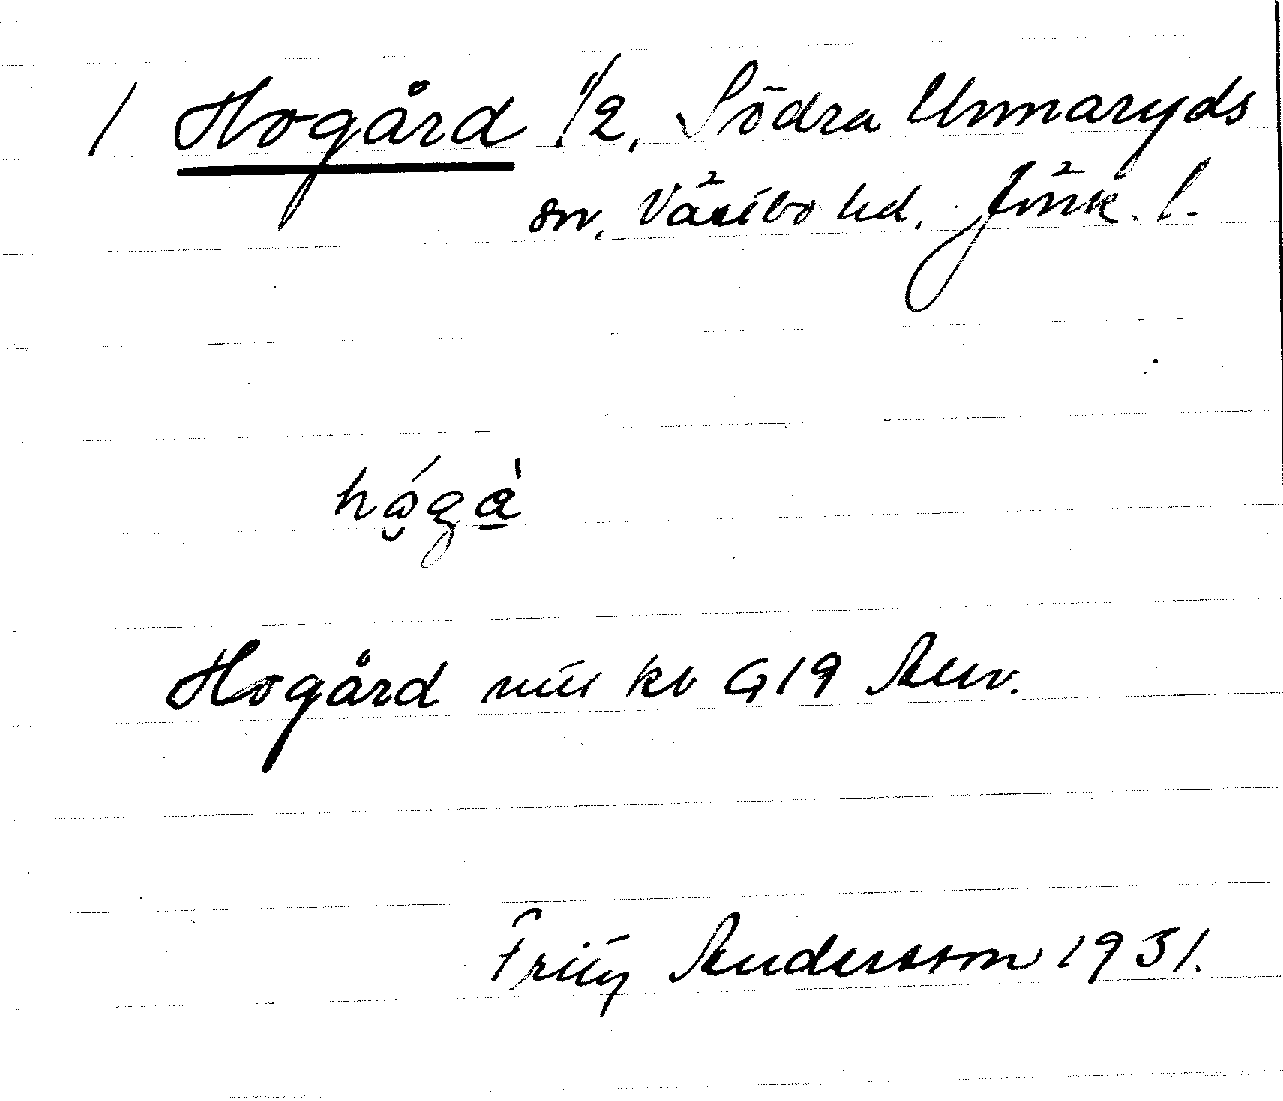 / Hogård 1/2, Södra Unnaryds
sn. Västbo hd. Jönk. l.
hógà
Hogård kb G19 Anv.
Fritz Andersson 1931.